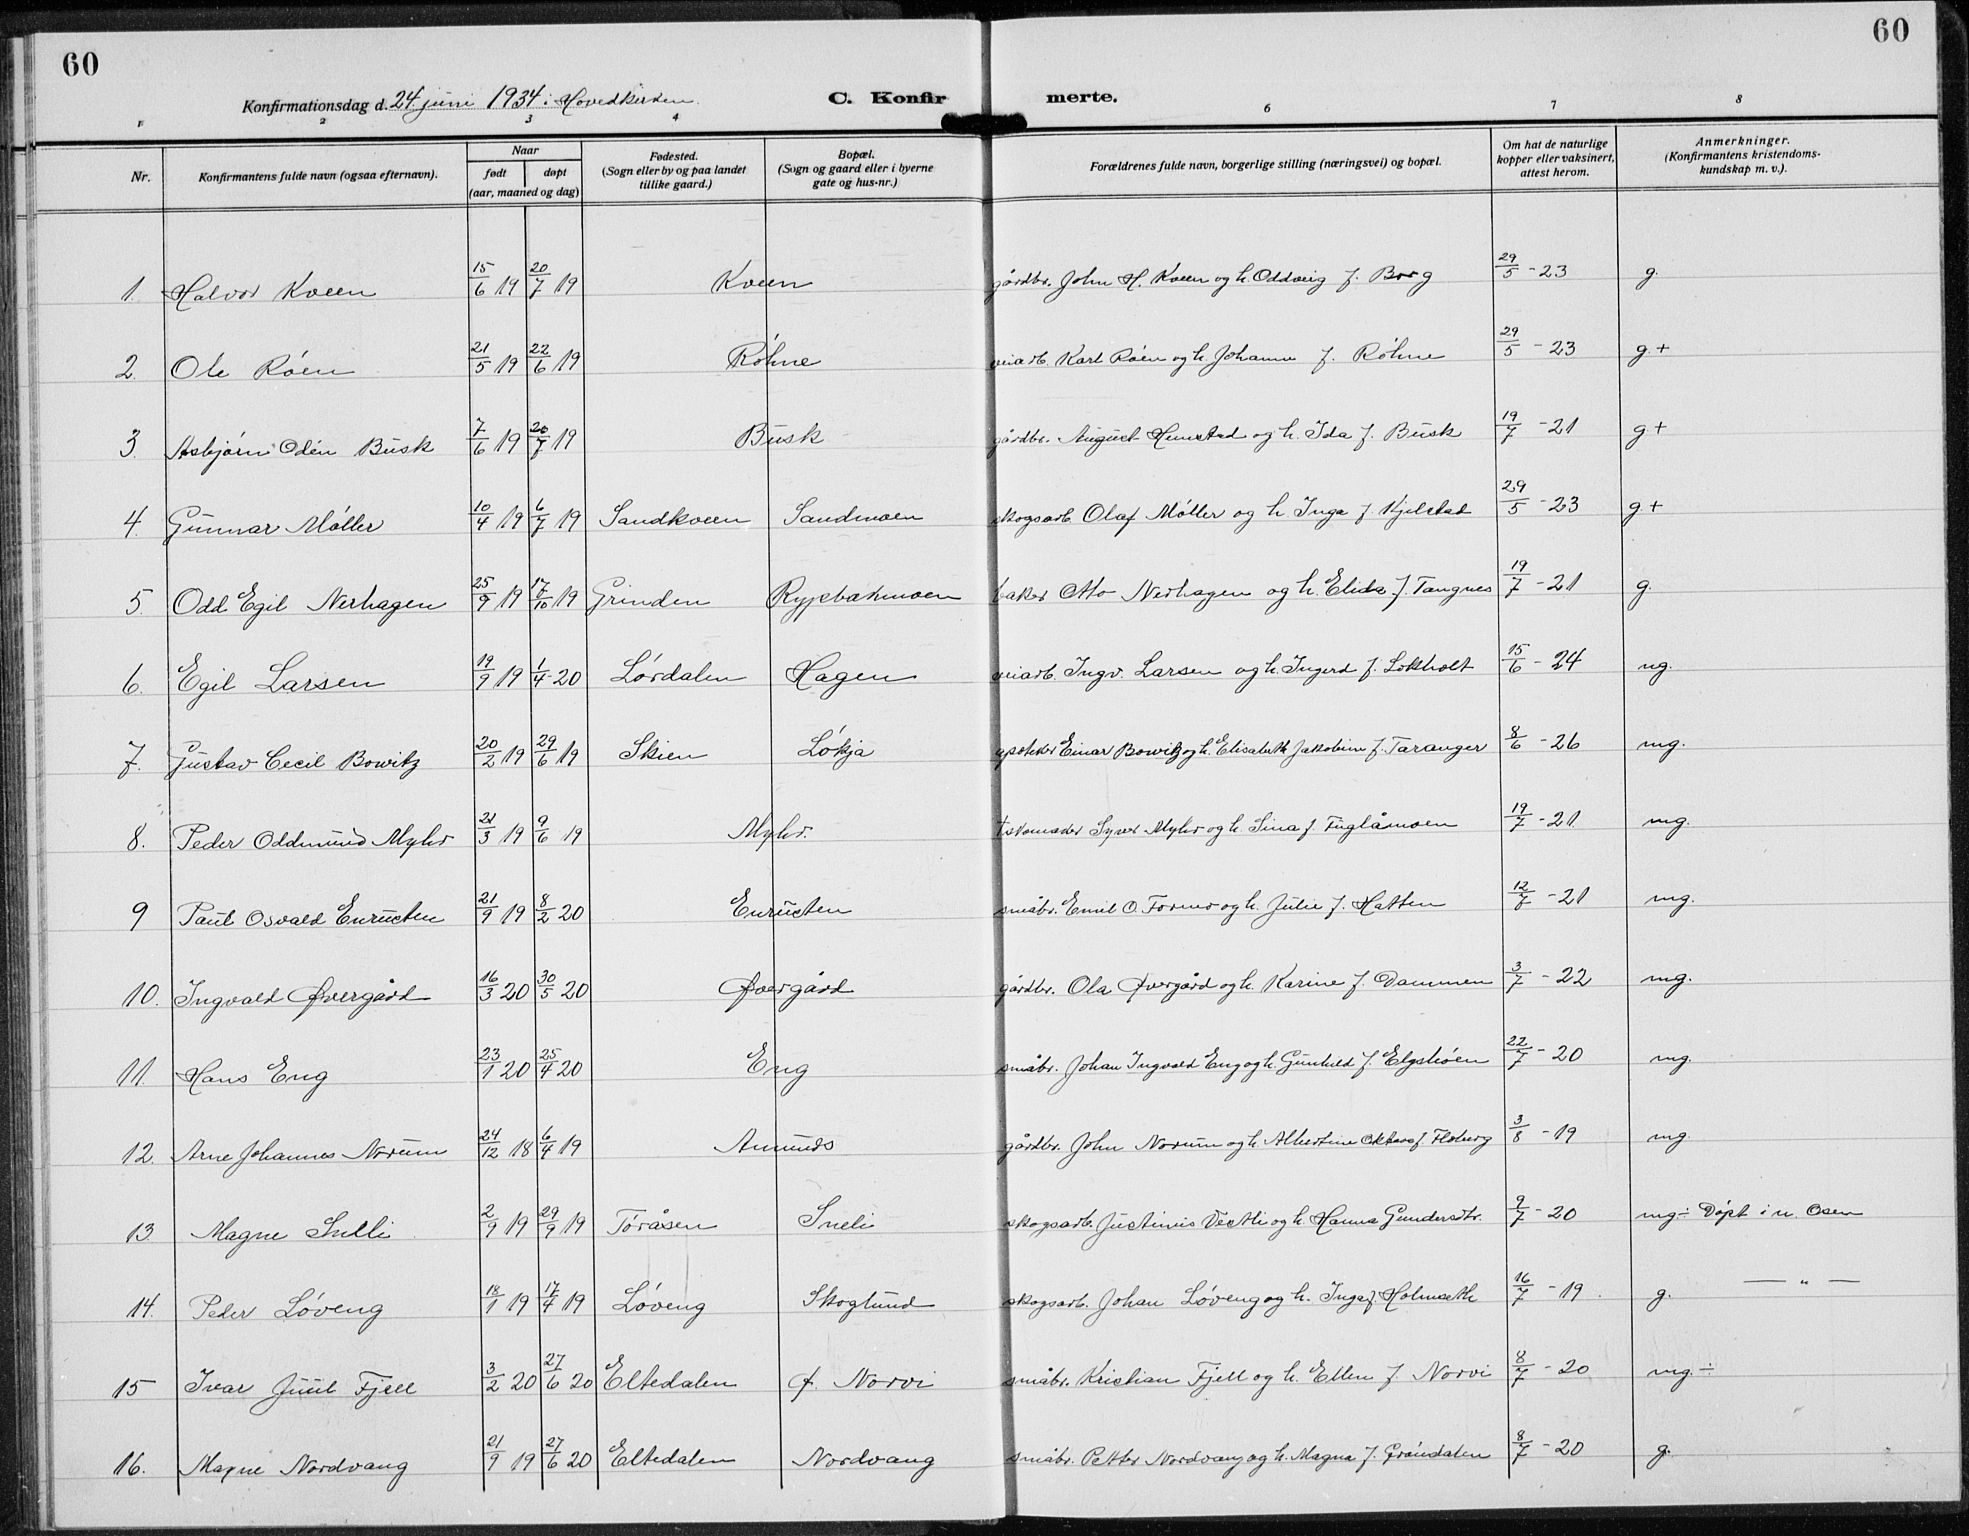 60
60
Konfirmationsdag d. 24 juni 1934 i Hovedkirken
C. Konfir merte.
1 2 3 4 6 7 8
Nr. Konfirmantens fulde navn (ogsaa efternavn). Naar født døpt (aar, maaned og dag) Fødested. (Sogn eller by og paa landet tillike gaard.) Bopæl. (Sogn og gaard eller i byerne gate og hus-nr.) Forældrenes fulde navn, borgerlige stilling (næringsvei) og bopæl. Om hat de naturlige kopper eller vaksinert, attest herom. Anmerkninger. (Konfirmantens kristendoms-kundskap m. v.).
1. Halvor Kveen 15/6 19 20/7 19 Kveen gårdbr. John H. Kveen og h. Oddveig f. Borg 29/5 - 23 g.
2. Ole Røen 21/5 19 22/6 19 Røhne veiarb. Karl Røen og h. Johanne f. Røhne 29/5 - 23 g +
3. Asbjørn Odén Busk 7/6 19 20/7 19 Busk gårdbr. August Hemstad og h. Ida f. Busk 19/7 - 21 g +
4. Gunnar Møller 10/4 19 6/7 19 Sandkveen Sandmoen skogsarb. Olaf Møller og h. Inga f. Kjelstad 29/5 - 23 g +
5. Odd Egil Nerhagen 25/9 19 17/10 19 Grinden Rypbakmoen baker Otto Nerhagen og h. Elida f. Tangnes 19/7 - 21 g.
6. Egil Larsen 19/9 19 1/4 - 20 Lørdalen Hagen veiarb. Ingv. Larsen og h. Ingerd f. Løkholt 15/6 - 24 ng.
7. Gustav Cecil Bowitz 20/2 19 29/6 19 Skien Løkja apoteker Einar Bowitz og h. Elisabeth Jakobine f. Taranger 8/6 - 26 mg.
8. Peder Oddmund Myhr 21/3 19 9/6 19 Myhr. † skomaker Syver Myhr og h. Sina f. Fuglåmoen 19/7 - 21 mg.
9 Paul Osvald Enrusten 21/9 19 8/2 20 Enrusten småbr. Emil O. Formo og h. Julie f. Hatten 12/7 - 21 mg.
10. Ingvald Øvergård 16/3 20 30/5 20 Øvergård gårdbr. Ola Øvergård og h. Karine f. Dammen 3/7 - 22 mg.
11. Hans Eng 23/1 20 25/4 20 Eng småbr. Johan Ingvald Eng og h. Gunhild f. Elgshøen 22/7 - 20 mg.
12. Arne Johannes Norum 24/12 18 6/4 19 Amunds gårdbr. John Norum og h. Albertine f. Floberg 3/8 - 19 mg.
13 Magne Snelli 2/9 19 29/9 19 Tøråsen Sneli skogsarb. Justinus Vestli og h. Hanna Gundersdtr. 9/7 - 20 mg ÷ Døpt i n. Osen
14. Peder Løveng 18/1 19 17/4 19 Løveng Skoglund skogsarb. Johan Løveng og h. Inga f. Holmseth 16/7 - 19. g. — " —
15 Ivar Juul Fjell 3/2 20 27/6 20 Eltedalen Ø. Norvi småbr. Kristian Fjell og h. Ellen f. Norvi 8/7 - 20 mg ÷
16. Magne Nordvang 21/9 19 27/6 20 Eltedalen Nordvang småbr. Petter Nordvang og h. Magna f. Grøndalen 8/7 - 20 g.